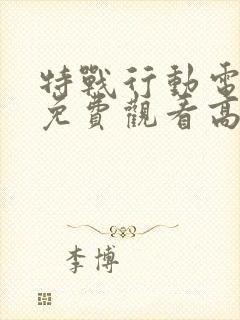 特戰行動電
免費觀看高
李博